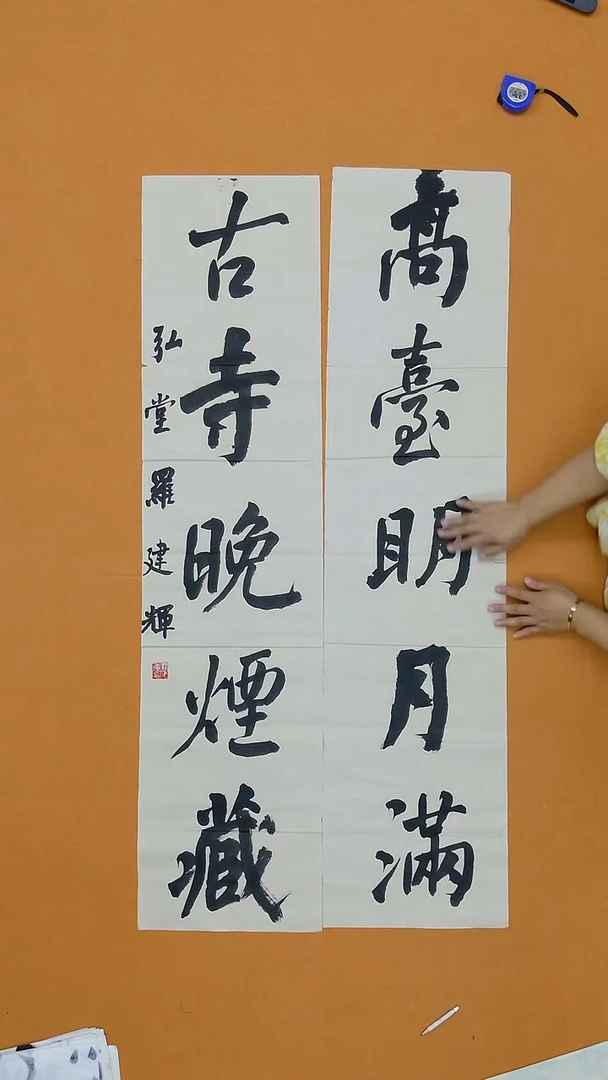 高臺明月滿
古寺晚煙藏
弘堂羅建輝